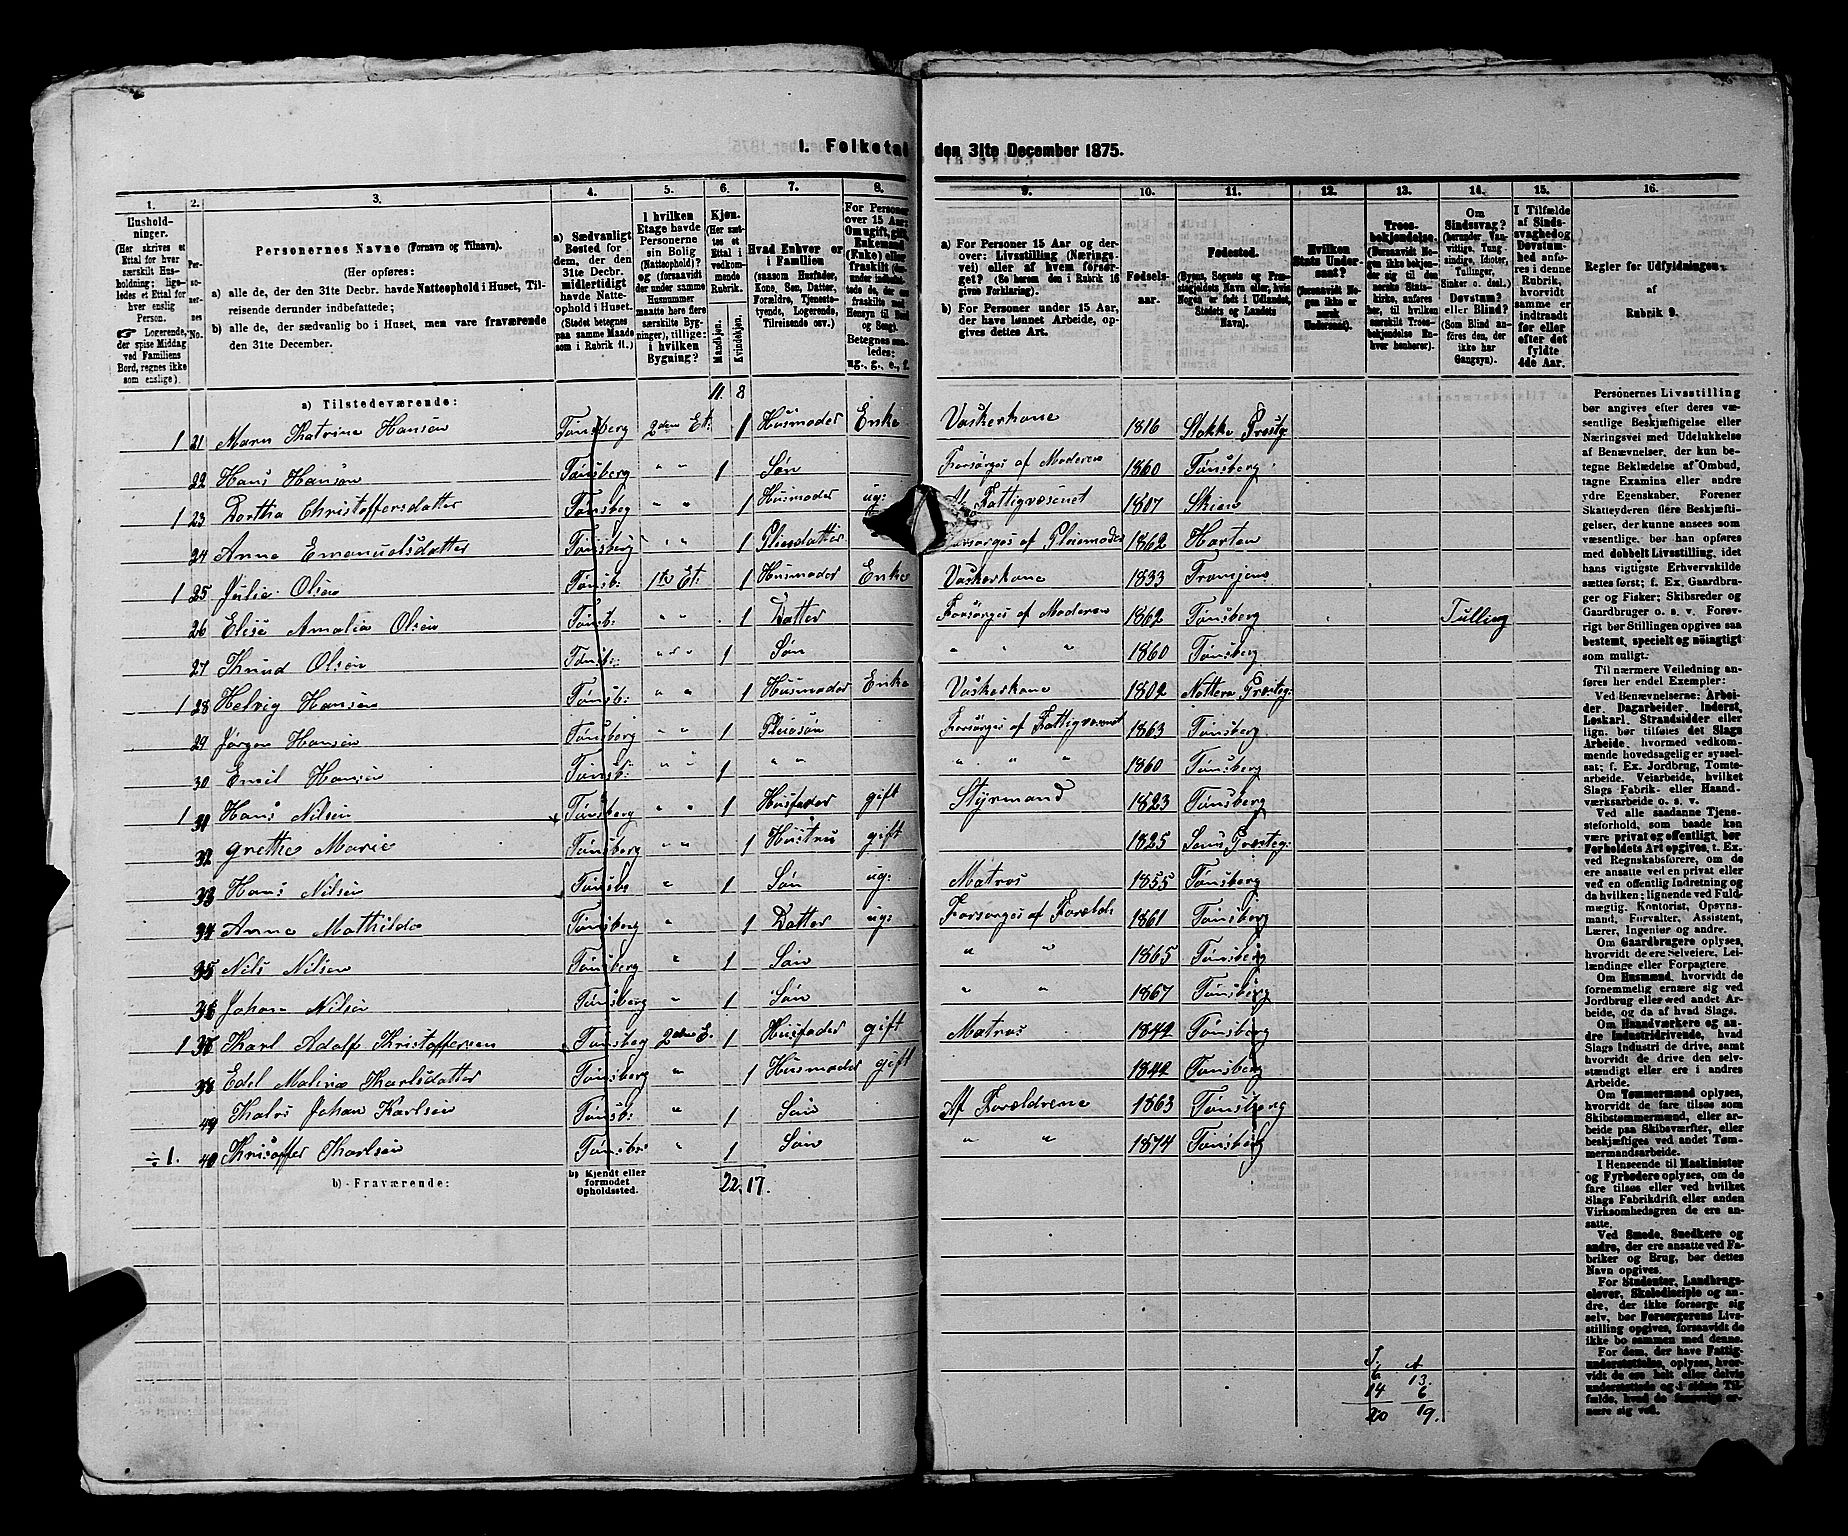 1. Folketal den 31te December 1875.
1. 2. 3. 4. 5. 6. 7. 8. 9. 10. 11. 12. 13. 14. 15. 16.
Husholdninger. (Her skrives et Ettal for hver særskilt Husholdning; ligeledes et Ettal for hver enslig Person. Logerende, der spise Middag ved Familiens Bord, regnes ikke som enslige).
Personernes No.
Personernes Navne (Fornavn og Tilnavn).
(Her opføres:
a) alle de, der den 31te Decbr. havde Natteophold i Huset, Tilreisende derunder indbefattede;
b) alle de, der sædvanlig bo i Huset, men vare fraværende den 31te December.
a) Sædvanligt Bosted for dem, der den 31te Decbr. midlertidigt havde Natteophold i Huset. (Stedet betegnes paa samme Maade som i Rubrik 11.)
I hvilken Etage havde Personerne sin Bolig (Natteophold)? og (forsaavidt der under samme Husnummer maatte høre flere særskilte Bygninger), tillige: i hvilken Bygning?
Kjøn. (Her sættes et Ettal i vedkommende Rubrik. Mandkjøn. Kvindekjøn.
Hvad Enhver er i Familien (saasom Husfader, Kone, Søn, Datter, Forældre, Tjenestetyende, Logerende, Tilreisende osv.)
For Personer over 15 Aar: Om ugift, gift, Enkemand (Enke) eller fraskilt
Betegnes saaledes: ug., g., e., f.
a) For Personer 15 Aar og derover: Livsstilling (Næringsvei) eller af hvem forsørget? (Se herom den i Rubrik 16 givne Forklaring).
b) For Personer under 15 Aar, der have lønnet Arbeide, opgives dettes Art.
Fødselsaar.
Fødested. (Byens, Sognets og Præstegjeldets Navn eller, hvis Nogen er født i Udlandet, Stedets og Landets Navn).
Hvilken Stats Undersaat? (forsaavidt Nogen ikke er norsk Undersaat).
Troesbekjendelse. (Forsaavidt Nogen ikke bekjender sig til den norske Statskirke, anføres her, til hvilken særskilt Troesbekjendelse Enhver henhører).
Om Sindssvag? (herunder Vanvittige, Tungsindige, Idioter, Tullinger, Sinker o. desl.) Døvstum? eller Blind? (Som Blind anføres den, der ikke har Gangsyn).
I Tilfælde af Sindssvaghed og Døvstumhed anføres i denne Rubrik, hvorvidt samme er indtraadt før eller efter det fyldte 4de Aar.
Regler for Udfyldningen af Rubrik 9.
11. 8
a) Tilstedeværende:
1 21 Maren Katrine Hansen Tønsberg 2den Et: 1 Husmoder Enke Vaskerkone 1816 Stokke Præstg
22 Hans Hansen Tønsberg " " 1 Søn Forsørges af Moderen 1860 Tønsberg
1 23 Dorthea Christoffersdatter Tønsbeg " " 1 Husmoder ug: Af Fattigvæsenet 1807 Skien
24 Anne Emanuelsdatter Tønsberg " " 1 Pleiedatter Forsørges af Pleiemoder 1862 Horten
1 25 Julie Olsen Tønsb: 1te Et: 1 Husmoder Enke Vaskerkone 1833 Tromjem
26 Elise Amalia Olsen Tønsb: " " 1 Datter Forsørges af Moderen 1862 Tønsberg Tulling
27 Knud Olsen Tønsb: " " 1 Søn " " " 1860 Tønsberg
1 28 Helvig Hansen Tønsb: " " 1 Husmoder Enke Vaskerkone 1802 Nøttera Præsteg:
29 Jørgen Hansen Tønsberg " " 1 Pleiesøn Forsørges af Fattigvæsenet 1863 Tønsberg
30 Emil Hansen Tønsb: " " 1 " " " " " 1860 Tønsberg
1 31 Hans Nilsen Tønsberg " " 1 Husfader gift Styrmand 1823 Tønsberg
32 Grethe Marie Tønsberg " " 1 Hustru gift 1825 Sems Præsteg:
33 Hans Nilsen Tønsbe " 1 Søn ug: Matros 1855 Tønsberg
34 Anne Mathilde Tønsberg " 1 Datter ug: Forsørges af Foræld: 1861 Tønsberg
35 Nils Nilsen Tønsberg " 1 Søn " " 1865 Tønsberg
36 Johan Nilsen Tønsberg " 1 Søn " " 1867 Tønsberg
1 37 Karl Adolf Kristoffersen Tønsbeg 2den E. 1 Husfader gift Matros 1842 Tønsberg
38 Edel Maline Karlsdatter Tønsberg " 1 Husmoder gift 1842 Tønsberg
49 Johan Karlsen Tønsb: " 1 Søn Af Forældrene 1863 Tønsberg
÷ 1. 40 Kristoffer Karlsen Tønsb: " 1 Søn " " 1874 Tønsberg
b) Fraværende:
b) Kjendt eller formodet Opholdssted.
22. 17.
6 13.
14 6
20 19.
Personernes Livsstilling
bør angives efter deres væsentlige
Beskjæftigelse eller
Næringsvei med Udelukkelse
af Benævnelser, der kun betegne
Beklædelse af Ombud,
tagne Examina eller andre
ydre Egenskaber. Forener
Skatteyderen flere Beskjæftigelser,
der kunne ansees som
væsentlige, bør han opføres
med dobbelt Livsstilling, idet
hans vigtigste Erhvervskilde
sættes først; f. Ex. Gaardbruger
og Fisker; Skibsreder og
Gaardbruger o. s. v. Forøvrigt
bør Stillingen opgives saa
bestemt, specielt og nöiagtigt
som muligt.
Til nærmere Veiledning anføres
her endel Exempler:
Ved Benævnelserne: Arbeider,
Dagarbeider, Inderst,
Løskarl, Strandsidder eller
lign. bør tilføies det Slags
Arbeide, hvormed vedkommende
hovedsagelig er sysselsat;
f. Ex. Jordbrug, Tomtearbeide,
Veiarbeide, hvilket
Slags Fabrik- eller Haandværksarbeide
o. s. v.
Ved alle saadanne Tjenesteforhold,
som baade kan
være privat og offentligt, bør
Forholdets Art opgives, f. Ex.
ved Regnskabsførere, om de
ere ansatte ved en privat eller
ved en offentlig Indretning og
da hvilken; lignende ved Fuldmægtig,
Kontorist, Opsynsmand,
Forvalter, Assistent,
Lærer, Ingeniør og andre.
Om Gaardbrugere oplyses,
hvorvidt de ere Selveiere, Leilændinge
eller Forpagtere.
Om Husmænd, hvorvidt de
fornemmelig ernære sig ved
Jordbrug eller ved andet Arbeide,
og da af hvad Slags.
Om Haandværkere og andre
Industridrivende, hvad
Slags Industri de drive, samt
hvorvidt de drive den selvstændigt
eller ere i andres
Arbeide.
Om Tømmermænd oplyses,
hvorvidt de fare tilsøs som
Skibstømmermænd, eller arbeide
paa Skibsværfter, eller
beskjæftiges ved andet Tømmermandsarbeide.
I Henseende til Maskinister
og Fyrbødere oplyses, om de
fare tilsøs eller ved hvilket
Slags Fabrikdrift eller anden
Virksomhedsgren de ere ansatte.
Ved Smede, Snedkere og
andre, der ere ansatte ved Fabriker
og Brug, bør dettes
Navn opgives.
For Studenter, Landbrugselever,
Skoledisciple og andre,
der ikke forsørge sig
selv, bør Forsørgerens Livsstilling
opgives, forsaavidt de
ikke bo sammen med denne.
For dem, der have Fattigunderstøttelse,
oplyses, hvorvidt
de ere helt eller delvis
understøttede og i sidste Tilfælde,
hvad de forøvrigt ernære
sig ved.